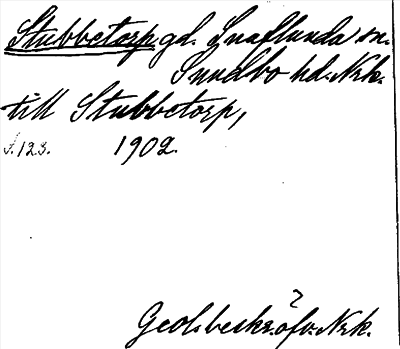 Stubbetorp gd. Snaflunda sn.
Sundbo hd. Nrk.
till Stubbetorp,
s. 123. 1902.
?
Geol. beskr. öfv. Nrk.